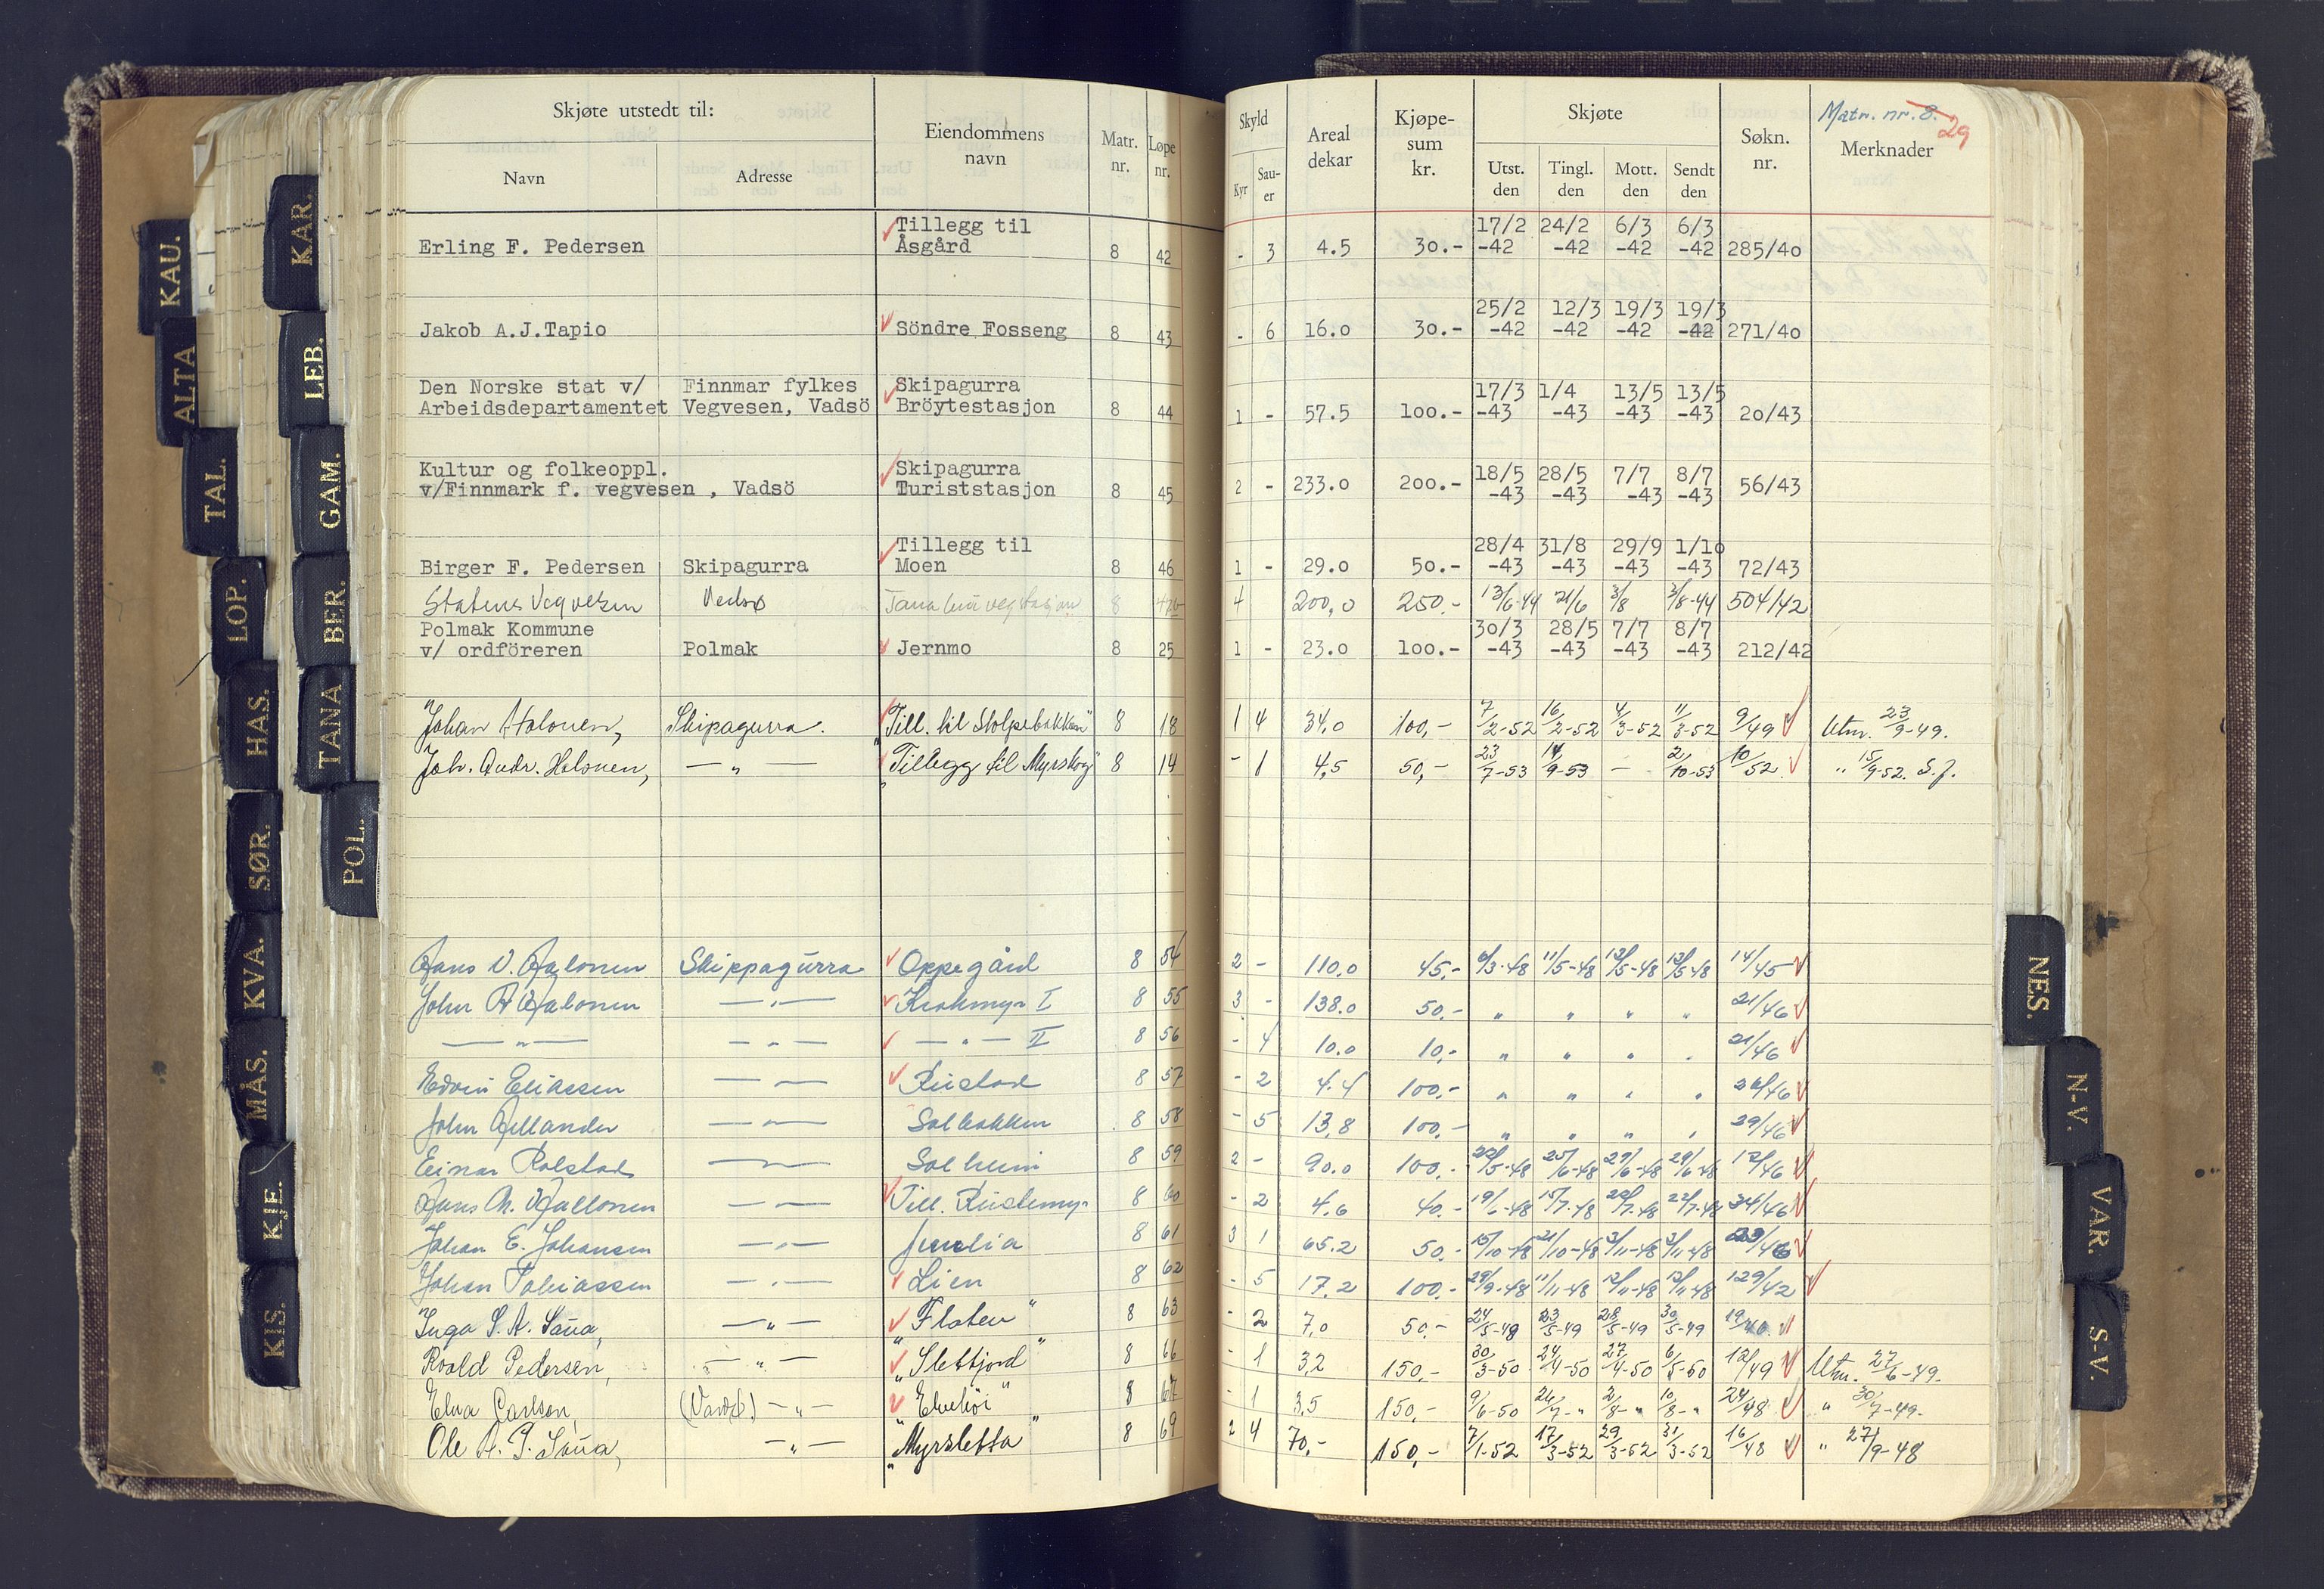 Skjøte utstedt til:
Navn Adresse Eiendommens navn Matr. nr. Løpe nr. Skyld Kyr Sauer Areal dekar Kjøpesum kr. Skjøte Utst. den Tingl. den Mott. den Sendt den Søkn. nr. Merknader
Matr. nr. 8. 29
Tillegg til 17/2 24/2 6/3 6/3
Erling F. Pedersen Åsgård 8 42 - 3 4.5 30.- -42 -42 -42 -42 285/40
25/2 12/3 19/3 19/3
Jakob A.J.Tapio Söndre Fosseng 8 43 - 6 16.0 30.- -42 -42 -42 -42 271/40
Den Norske stat v/ Finnmar fylkes Skipagurra 17/3 1/4 13/5 13/5
Arbeidsdepartamentet Vegvesen, Vadsö Bröytestasjon 8 44 1 - 57.5 100.- -43 -43 -43 -43 20/43
Kultur og folkeoppl. Skipagurra 18/5 28/5 7/7 8/7
v/Finnmark f. vegvesen , Vadsö Turiststasjon 8 45 2 - 233.0 200.- -43 -43 -43 -43 56/43
Tillegg til 28/4 31/8 29/9 1/10
Birger F. Pedersen Skipagurra Moen 8 46 1 - 29.0 50.- -43 -43 -43 -43 72/43
Statens Vegvesen Vadsø Tana bru vegstasjon 8 4 200,0 250.- 13/6-44 21/6 3/8 3/8-44 504/42
Polmak Kommune 30/3 28/5 7/7 8/7
v/ ordföreren Polmak Jernmo 8 25 1 - 23.0 100.- -43 -43 -43 -43 212/42
Johan Halonen, Skipagurra. "Till. til Stolpebakken" 8 18 1 4 34,0 100,- 7/2-52 16/2-52 4/3-52 11/3-52 9/49 Utm. 23/9-49.
Joh. Andr. Halonen, — " — "Tillegg til Myrskog" 8 14 - 1 4,5 50,- 23/7-53 14/9-53 — 2/10-53 10/52. " 15/9-52. S.j.
Hans N. Halonen Skippagurra Oppegård 8 54 2 - 110.0 45.- 6/3-48 11/5-48 13/5-48 13/5-48 14/45
John A Halonen — " — Krokmyr I 8 55 3 - 138.0 50.- " " " " 21/46
— " — — " — — " — II 8 56 - 4 10.0 10,- " " " " 21/46
Edvin Eliassen — " — Rustad 8 57 - 2 4.4 100.- " " " " 26/46
John Hellander — " — Solbakken 8 58 - 5 13,8 100.- " " " " 29/46
Einar Rolstad — " — Solheim 8 59 2 - 90.0 100.- 22/5-48 25/6-48 29/6-48 29/6-48 12/46
Hans M. Hallonen — " — Till. Rustemyr 8 60 - 2 4.6 40.- 19/6-48 15/7-48 22/7-48 22/7-48 34/46
Johan E. Johansen — " — 8 61 3 1 65.2 50.- 15/10-48 21/10-48 3/11-48 3/11-48 23/46
Johan Tobiassen — " — Lien 8 62 - 5 17.2 100.- 29/9-48 11/11-48 12/11-48 12/11-48 129/42
Inga S. A. Saua, — " — "Flaten" 8 63 - 2 7,0 50.- 24/5-49 23/5-49 28/5-49 30/5-49 19/40.
Roald Pedersen, — " — "Slettjord" 8 66 - 1 3,2 150,- 30/3-50 24/4-50 27/4-50 6/5-50 12/49 Utm. 27/6-49.
Elna Carlson, (Vardø.) — " — "Elvehöi" 8 67 - 1 3,5 150,- 9/6-50 26/7-" 2/8-" 10/8-" 24/48 " 30/7-49.
Ole A. P. Saua, — " — "Myrsletta" 8 69 2 4 70,- 150,- 7/1-52 17/3-52 29/3-52 31/3-52 16/48 " 27/9-48
KAU.
ALTA
TAL.
LOP.
HAS.
SØR.
KVA.
MÅS.
KJE.
KIS.
KAR.
LEB.
GAM.
BER.
TANA
POL.
NES.
N-V.
VAR.
S-V.